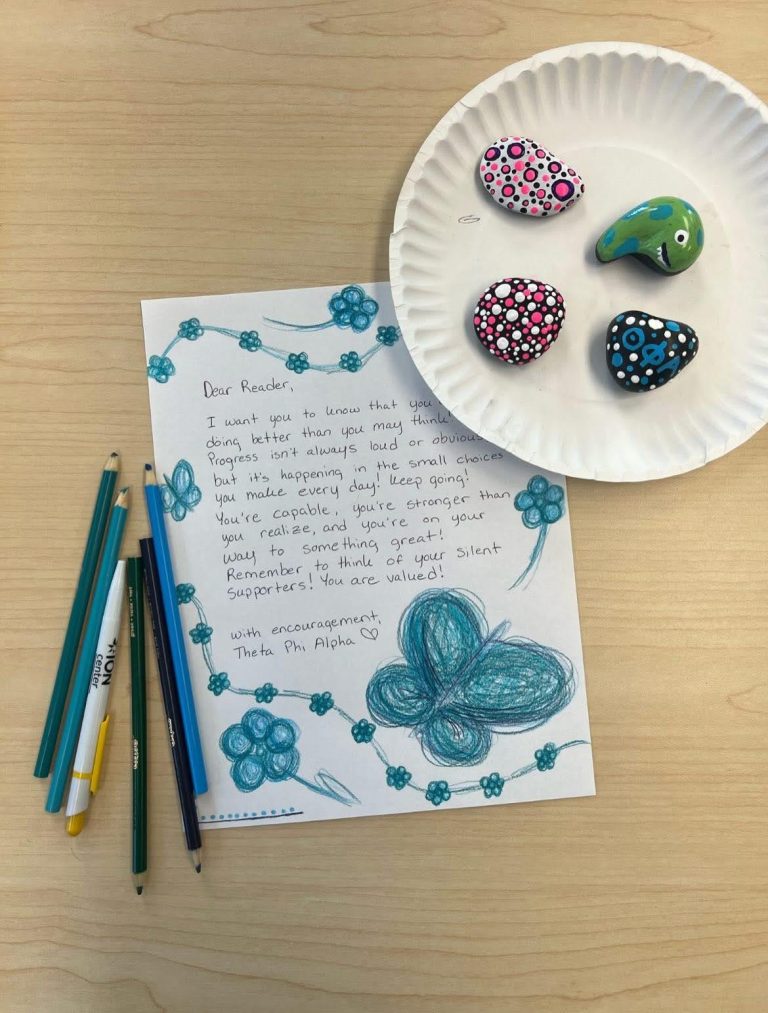 Dear Reader,
I want you to know that you
doing better than you may think!
Progress isn't always loud or obvious
but it's happening in the small choices
you make every day! Keep going!
You're capable, you're stronger than
you realize, and you're on your
way to something great!
Remember to think of your silent
supporters! You are valued!
with encouragement,
Theta Phi Alpha ♡
ΘΦΑ
center